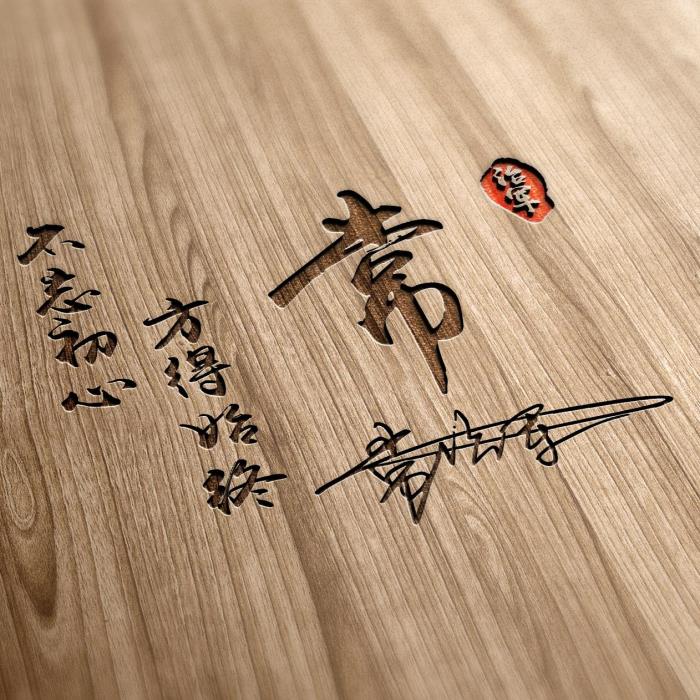 不忘初心
方得始终
常